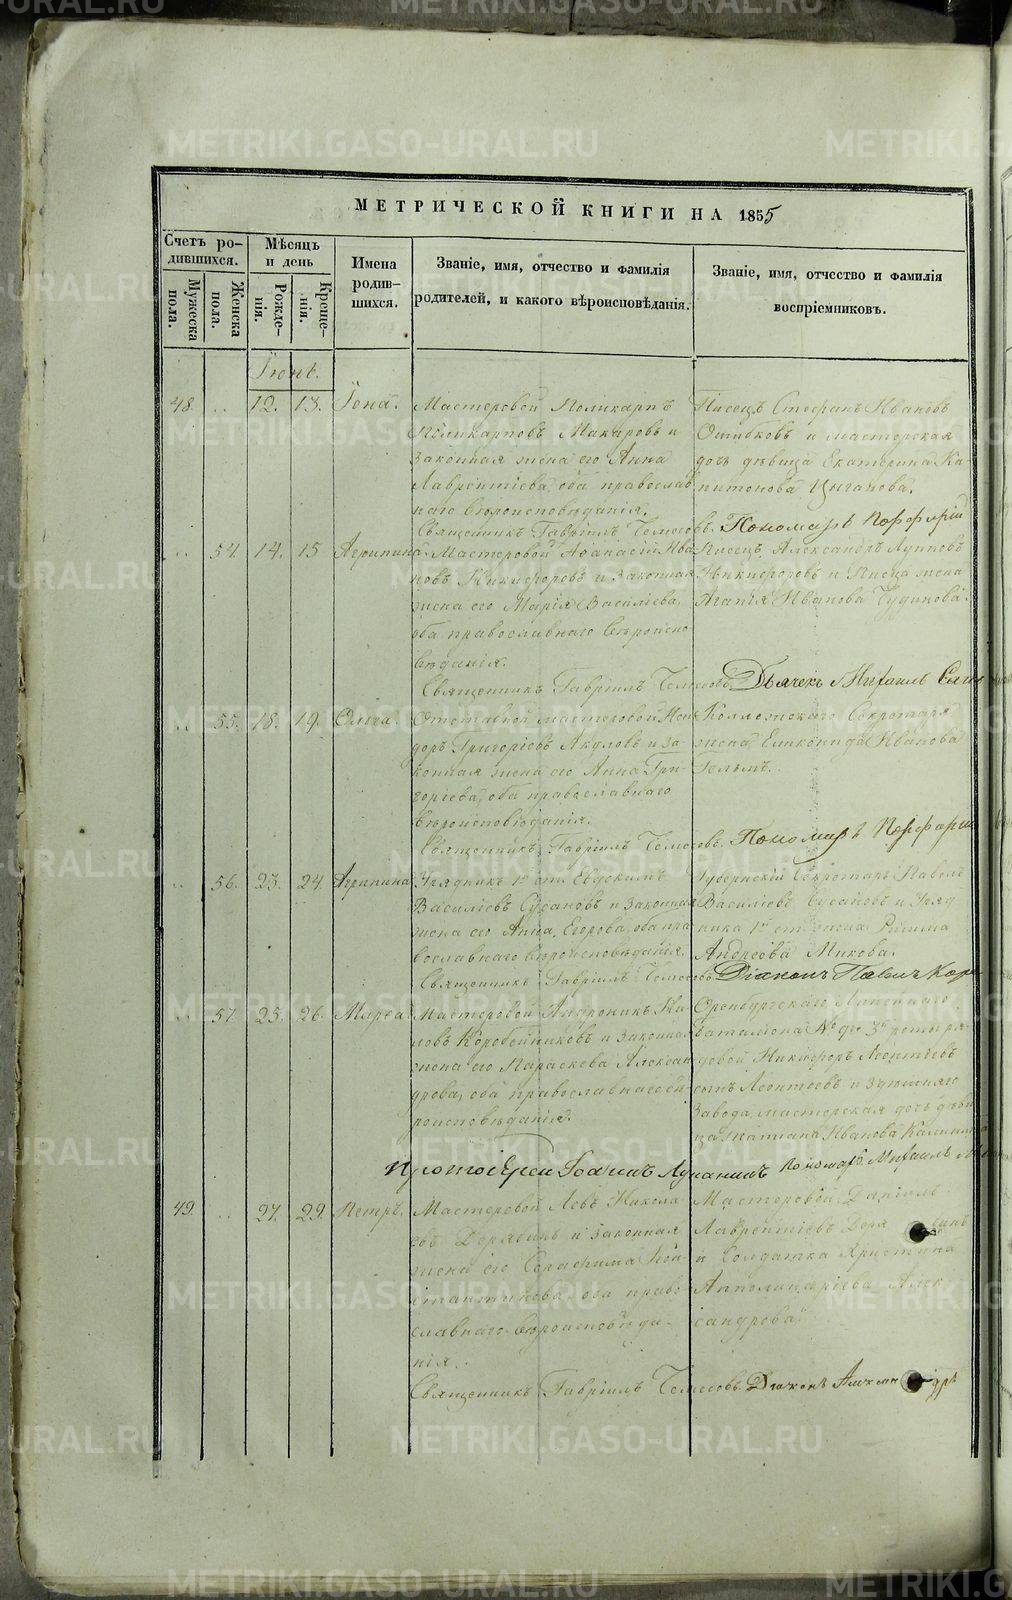 METRIKI.GASO-URAL.RU
МЕТРИЧЕСКОЙ КНИГИ НА 1855
Счетъ ро-
дившихся.
Мужеска
пола.
Женска
пола.
Мѣсяцъ
и день
Рожде-
нія.
Креще-
нія.
Имена
родив-
шихся.
Званіе, имя, отчество и фамилія
родителей, и какого вѣроисповѣданія.
Званіе, имя, отчество и фамилія
воспріемниковъ.
Іюнь.
48. .. 12. 13. Іона.
Мастеровой Поликарпъ
Поликарповъ Макаровъ и
законная жена его Анна
Лаврентіева, оба православ
наго вѣроисповѣданія.
Писецъ Стефанъ Ивановъ
Ошибковъ и мастерская
дочь дѣвица Екатерина Ка-
питонова Цыганова.
Священникъ Гавріилъ Пономарь Порфирій
.. 54. 14. 15 Агрипина.
Мастеровой Афанасій Ива
новъ Никифоровъ и законная
жена его Марія Василіева,
оба православнаго вѣроиспо
вѣданія.
Писецъ Александръ
Никифоровъ и писца жена
Агапія Иванова Чудинова.
Священникъ Гавріилъ Дьячекъ Михаилъ
.. 55. 18. 19. Ольга.
Отставной мастеровой Иси
доръ Григоріевъ Акуловъ и за
конная жена его Анна Гри-
горіева, оба православнаго
вѣроисповѣданія.
Коллежскаго Секретаря
жена Еликонида Иванова
Гельмъ.
Священникъ Гавріилъ Пономарь Порфирій
.. 56. 23. 24. Агрипина
Урядникъ 1й ст.
Василіевъ Сусановъ и законная
жена его Анна Егорова, оба пра
вославнаго вѣроисповѣданія.
Губернскій Секретарь Павелъ
Василіевъ Сусановъ и уряд
ника 1й ст. жена
Андреева Микова.
Священникъ Гавріилъ Діаконъ Павелъ
.. 57. 25. 26. Марѳа.
Мастеровой Андроникъ
Коробейниковъ и законная
жена его Параскева Алексан
дрова, оба православнаго вѣ
роисповѣданія.
Оренбургскаго Линейнаго
баталіона № 3й роты ря
довой Никифоръ Леонтіевъ
сынъ Леонтьевъ и здѣшняго
завода мастерская дочь дѣви
ца Татіана Иванова
Протоіерей Іоаннъ Пономарь Михаилъ
49. .. 27. 29. Петръ.
Мастеровой Левъ Никола
евъ Дерябинъ и законная
жена его Серафима Кон
стантинова, оба право
славнаго вѣроисповѣда-
нія.
Мастеровой Даніилъ
Лаврентіевъ
и Солдатка Христина
Апполинаріева Алек
сандрова.
Священникъ Гавріилъ Діаконъ